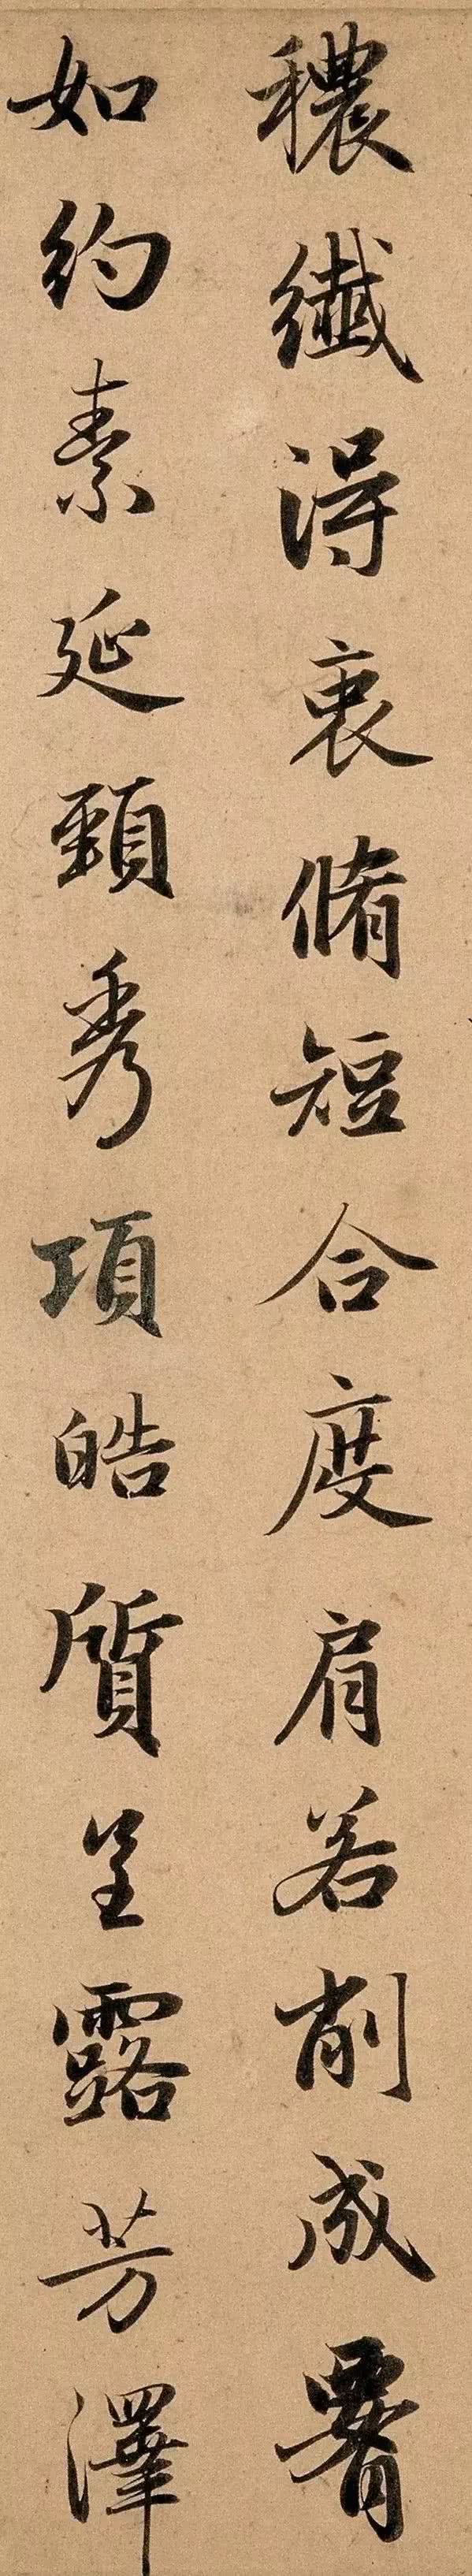 穠纖得衷脩短合度肩若削成𦝫
如約素延頸秀項皓質呈露芳澤